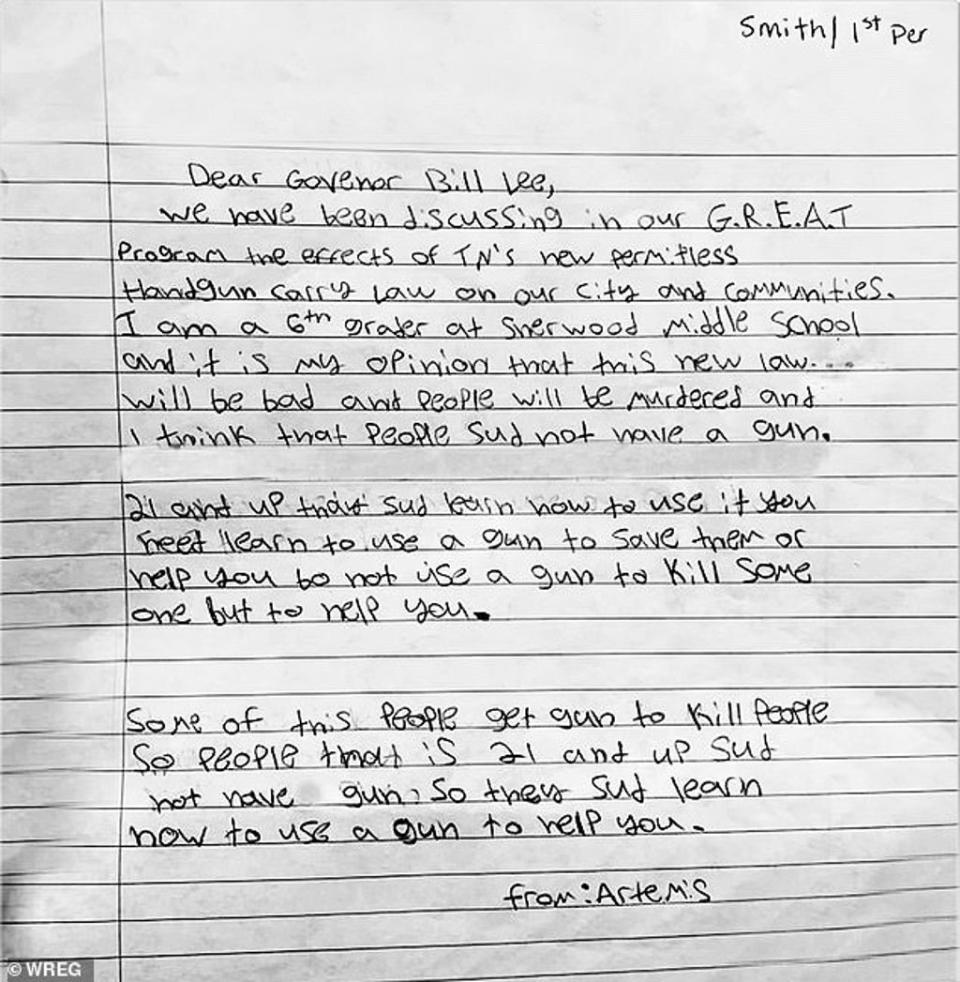 Smith/ 1st Per
Dear Govenor Bill Lee,
We have been discussing in our G.R.E.A.T
Program the effects of TN's new permitless
Handgun carry Law on our city and communities.
I am a 6th grader at Sherwood Middle School
and it is my opinion that this new law....
will be bad and people will be murdered and
I think that people sud not have a gun.
21 and up that sud learn how to use it you
need learn to use a gun to save them or
help you do not use a gun to kill some
one but to help you.
Some of this people get gun to kill people
So people that is 21 and up sud
not have gun, so they sud learn
how to use a gun to help you.
from: Artemis
© WREG